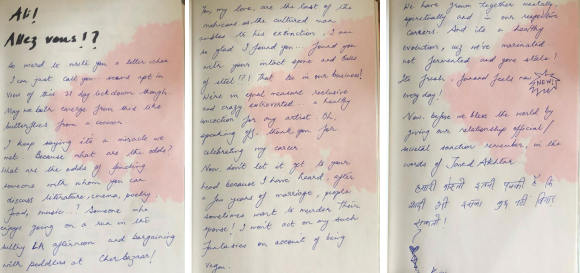 Ali!
Allez vous!?
So weird to write you a letter when
I can just call you. seems apt in
view of this 21 day lockdown though.
May we both emerge from this like
butterflies from a cocoon.
I keep saying it's a miracle we
met. Because what are the odds?
What are the odds of finding
someone with whom you can
discuss literature, cinema, poetry
food, music..? Someone who
enjoys going on a run in the
sultry LA afternoon and bargaining
with peddlers at Chor bazaar!
You, my love, are the last of the
mohicans as the cultured man
ambles to his extinction. I am
so glad I found you... Found you
with your intact spine and balls
of steel
We're in equal measure reclusive
and crazy extroverted.. a healthy
for my artist
speaking thank you for
celebrating my career
Now, don't let it get to your
head because I have heard, after
a few years of marriage, people
sometimes want to murder their
spouse! I won't act on any such
fantasies on account of being
vegan.
We have grown together mentally,
spiritually and in our respective
careers. And it's a healthy
evolution, cuz we've marinated
not fermented and gone stale!
Its fresh, forward feels new
every day!
NEW!
Now, before we bless the world by
giving our relationship official/
societal sanction remember, in the
words of Javed Akhtar
हमारी दोस्ती इतनी पक्की है कि
शादी भी इसका कुछ नहीं बिगाड़
सकती!